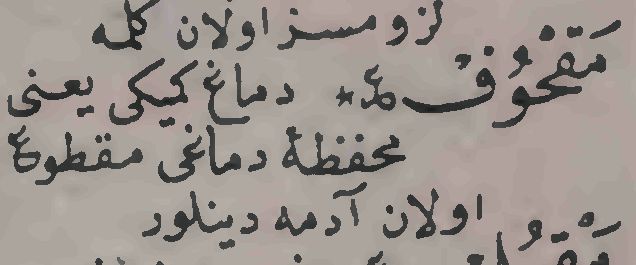 لزومسز اولان كلمه
مَقْحُوُفْ ع٭ دماغ كميكى يعنى
محفظۀ دماغى مقطوع
اولان آدمه دينلور